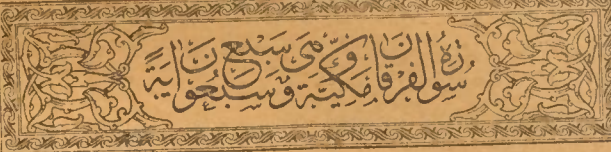 سورة الفرقان مكية وهى سبع وسبعون اية